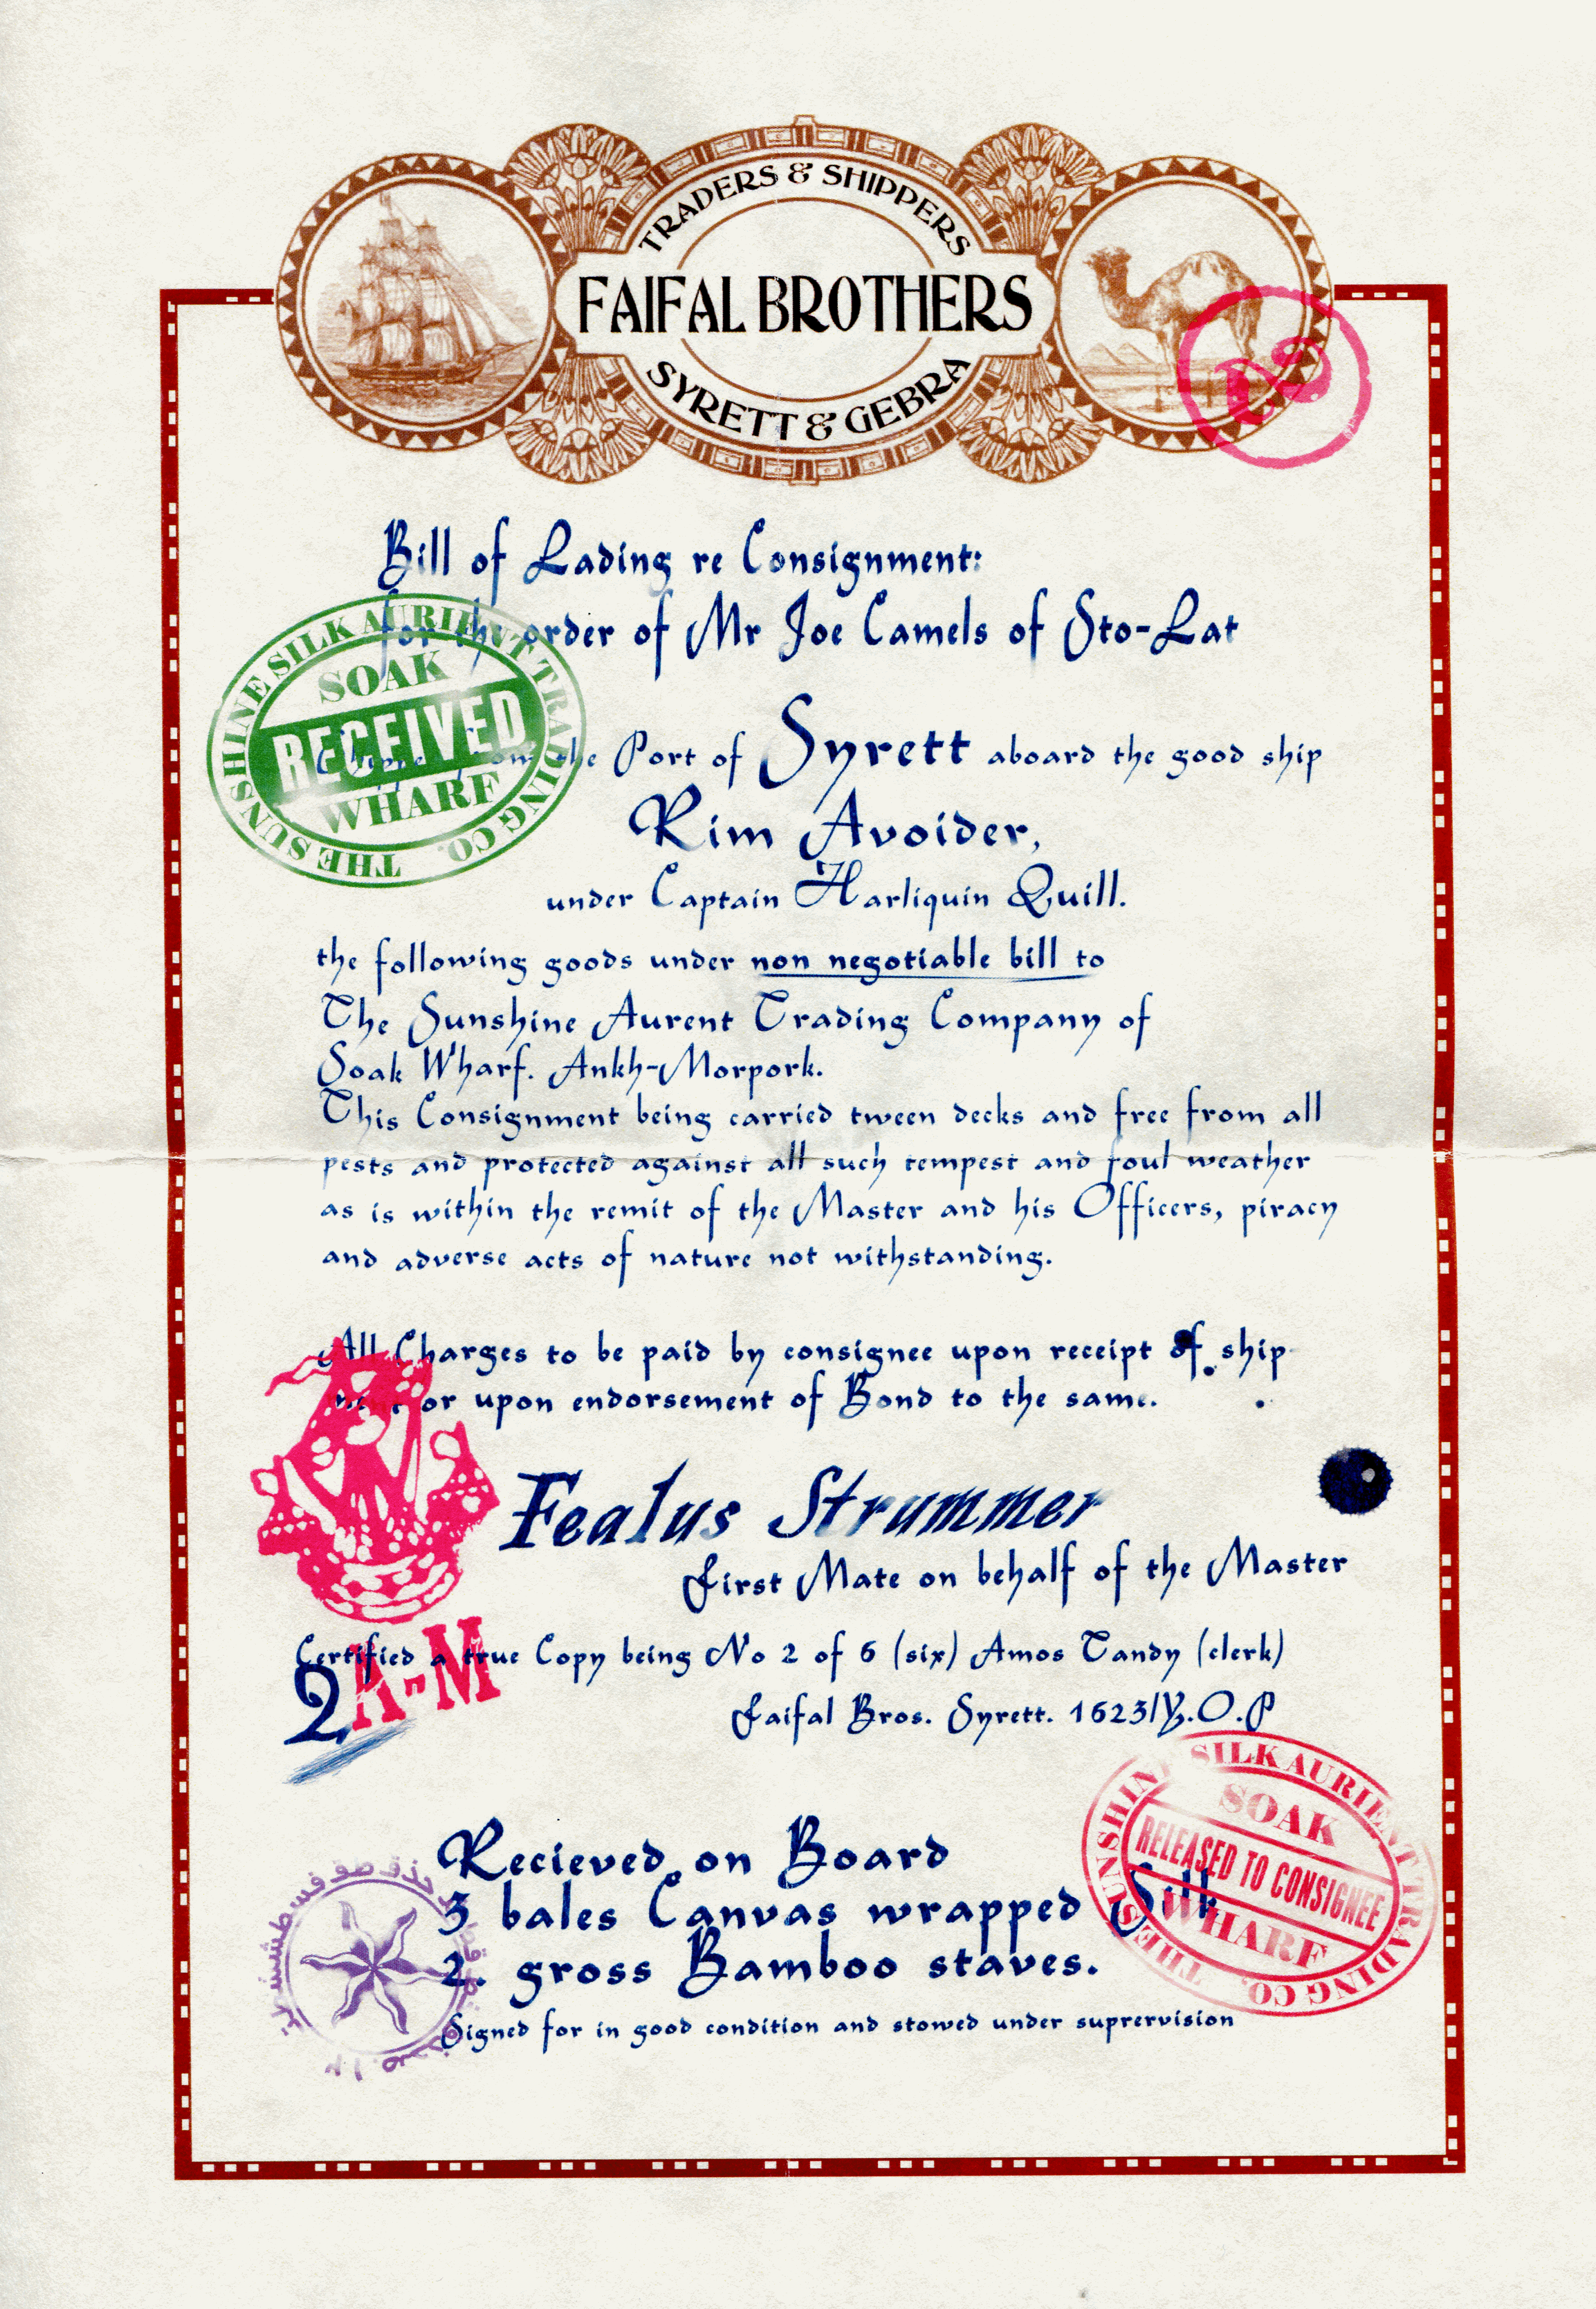 TRADERS & SHIPPERS
FAIFAL BROTHERS
SYRETT & GEBRA
Bill of Lading re Consignment:
for the order of Mr Joe Camels of Sto-Lat
THE SUNSHINE SILK AURIENT TRADING CO.
SOAK
RECEIVED
WHARF
Shipped from the Port of Syrett aboard the good ship
Rim Avoider,
under Captain Harliquin Quill.
the following goods under non negotiable bill to
The Sunshine Aurent Trading Company of
Soak Wharf. Ankh-Morpork.
This Consignment being carried tween decks and free from all
pests and protected against all such tempest and foul weather
as is within the remit of the Master and his Officers, piracy
and adverse acts of nature not withstanding.
All Charges to be paid by consignee upon receipt of ship
ment or upon endorsement of Bond to the same.
Fealus Strummer
First Mate on behalf of the Master
Certified a true Copy being No 2 of 6 (six) Amos Tandy (clerk)
2 A-M
Faifal Bros. Syrett. 1623/Y.O.P
THE SUNSHINE SILK AURIENT TRADING CO.
SOAK
RELEASED TO CONSIGNEE
WHARF
Recieved on Board
3 bales Canvas wrapped Silk
2. gross Bamboo staves.
Signed for in good condition and stowed under suprervision